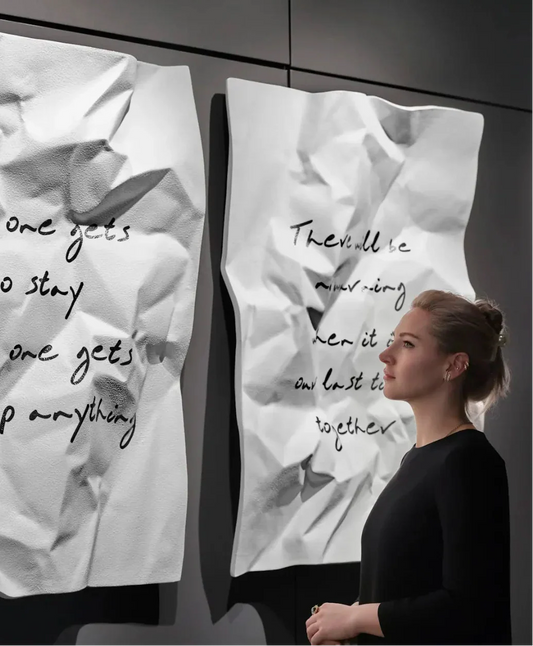 one gets
o stay
one gets
p anything
There will be
hen it
our last
together